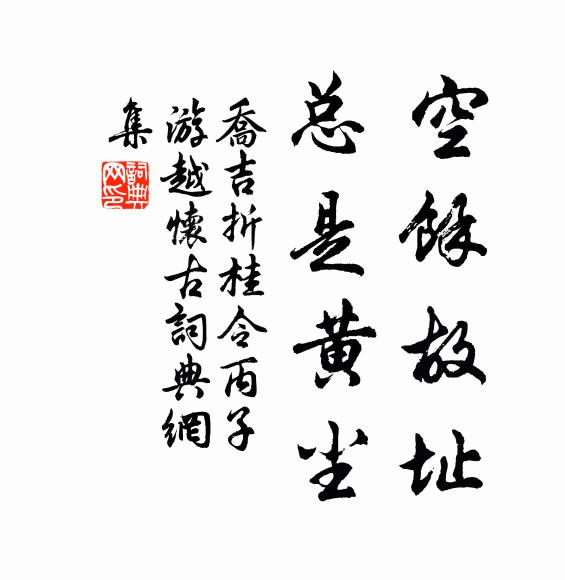 空餘故址
总是黄尘
喬吉折桂令丙子
游越懷古詞典網
集
詞典
网印